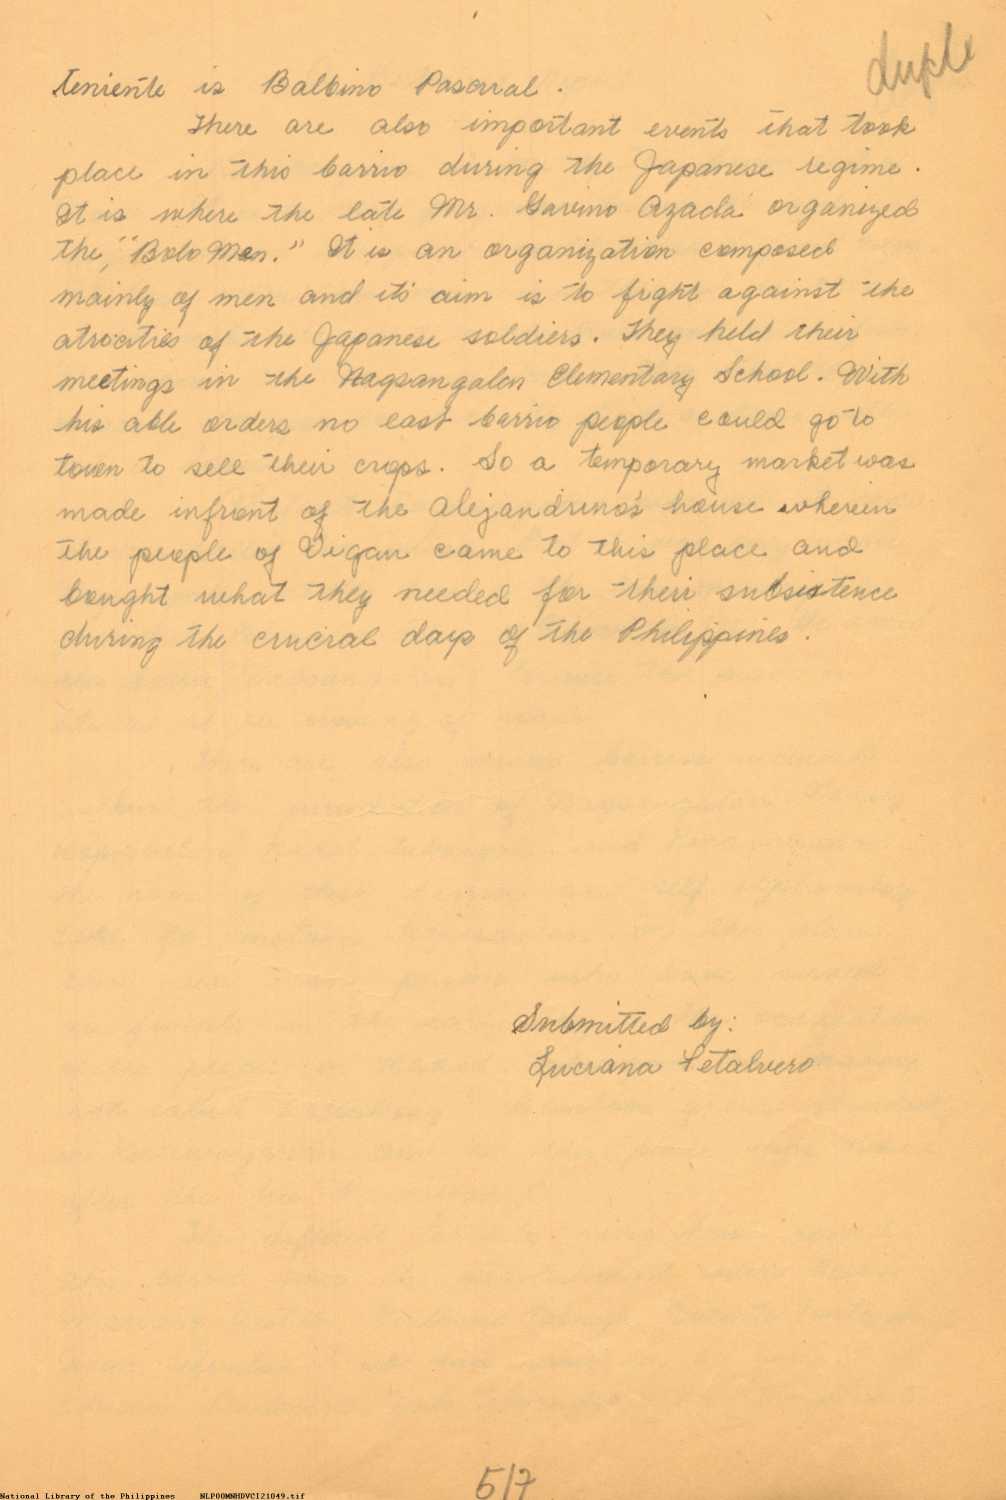 duple
teniente is Balbino Pascual.
There are also important events that took
place in this barrio during the Japanese regime.
It is where the late Mr. Gavino Azada organized
the, "Bolo Men." It is an organization composed
mainly of men and its aim is to fight against the
atrocities of the Japanese soldiers. They held their
meetings in the Nagsangalan Elementary School. With
his able orders no east barrio people could go to
town to sell their crops. So a temporary market was
made infront of the Alejandrino's house wherein
the people of Vigan came to this place and
bought what they needed for their subsistence
during the crucial days of the Philippines.
Submitted by:
Luciana Petalvero
5/7
National Library of the Philippines NLPO0MNHDVCI21049.tif